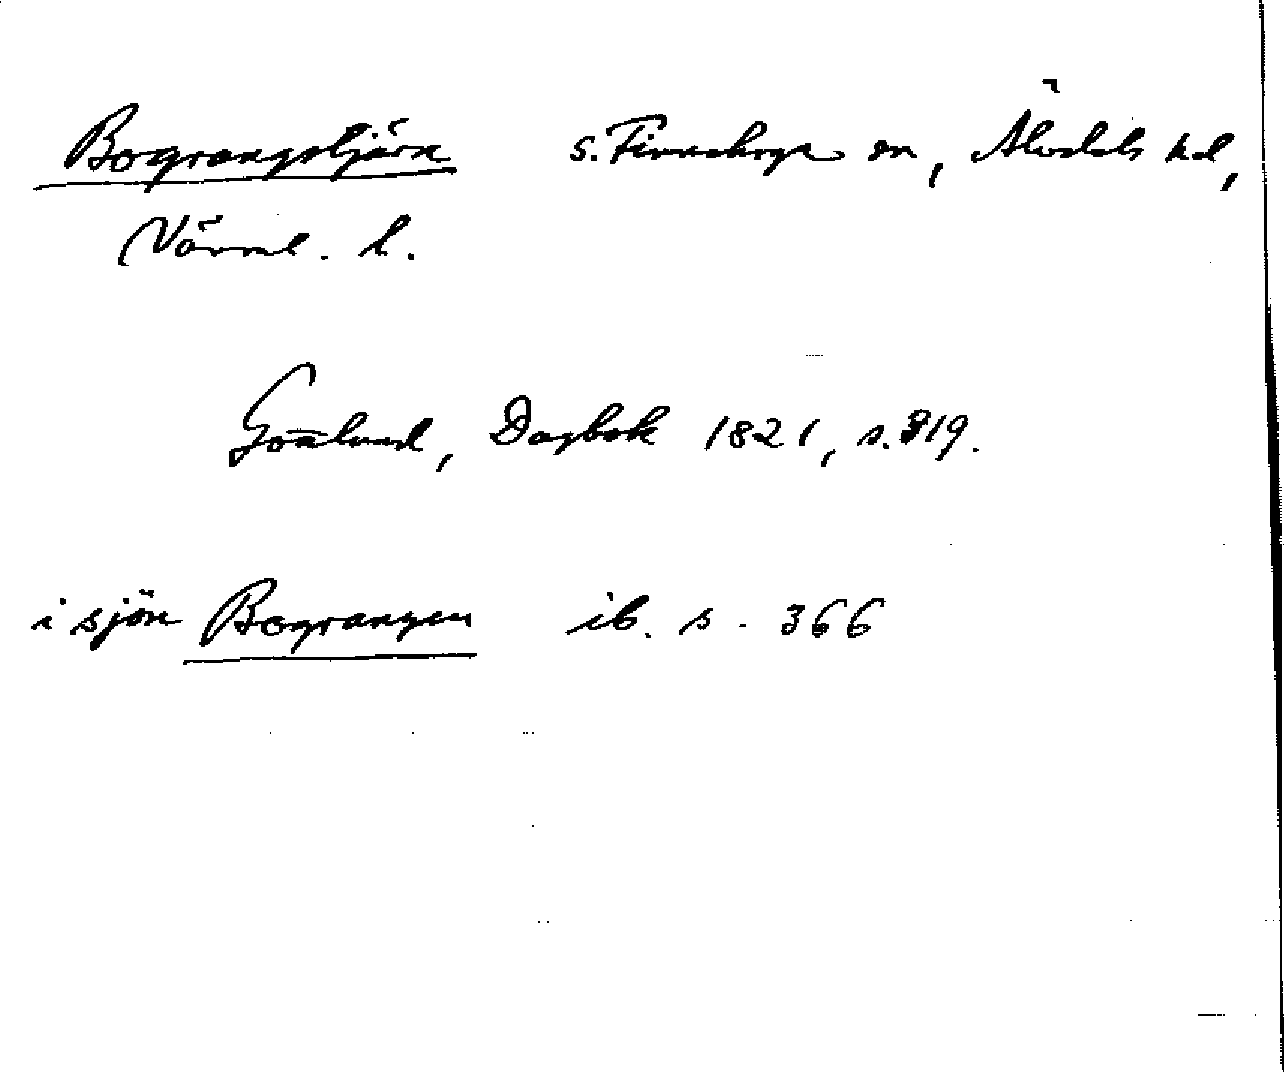 Bograngstjärn s. Finnskoga sn, Älvdals hd,
Värml. l.
Gottlund, Dagbok 1821, s. 319.
i sjön Bograngen ib. s. 366